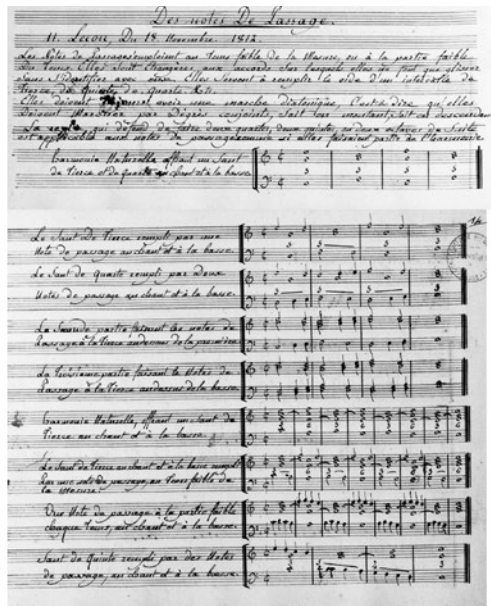 Des notes De Passage.
11. Leçon, Du 18 Novembre 1812.
Les Notes de Passage s'emploient au tems faible de la Mesure, ou à la partie faible
du tems. Elles Sont Etrangères aux accords sur lesquels elles ne font que glisser
Sans S'identifier avec eux. Elles Servent à remplir le vide d'un intervalle de
tierce, de Quinte, de Quarte &c.
Elles doivent avoir une marche diatonique, C'est à dire qu'elles
Doivent Marcher par Dégrés conjoints, Soit en montant, Soit en descendant
La règle qui défend de faire deux quartes, deux quintes, ou deux octaves de Suite
est applicable aux notes de passage comme si elles faisaient partie de l'harmonie.
harmonie Naturelle offrant un Saut
de Tierce et de Quarte au chant et à la basse
Le Saut De Tierce rempli par une
Note de passage au chant et à la basse.
Le Saut de Quarte rempli par Deux
Notes de passage au chant et à la basse.
La Seconde partie faisant les notes de
Passage à la tierce au dessous de la première
La Troisième partie faisant les Notes de
Passage à la Tierce au dessus de la basse
harmonie Naturelle, offrant un Saut de
Tierce au chant et à la basse
Le Saut de Tierce au chant et à la basse rempli
Par une note de passage, au tems faible de
la Mesure.
Une Note de passage à la partie faible
chaque tems, au chant et à la basse.
Saut de Quinte rempli par des Notes
de passage, au chant et à la basse.